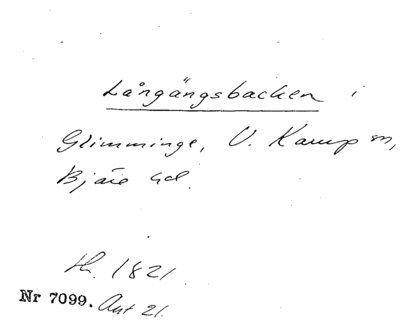 Långängsbacken i
Glimminge, V. Karup sn,
Bjäre hd.
th. 1821
Nr 7099. Ant 21.